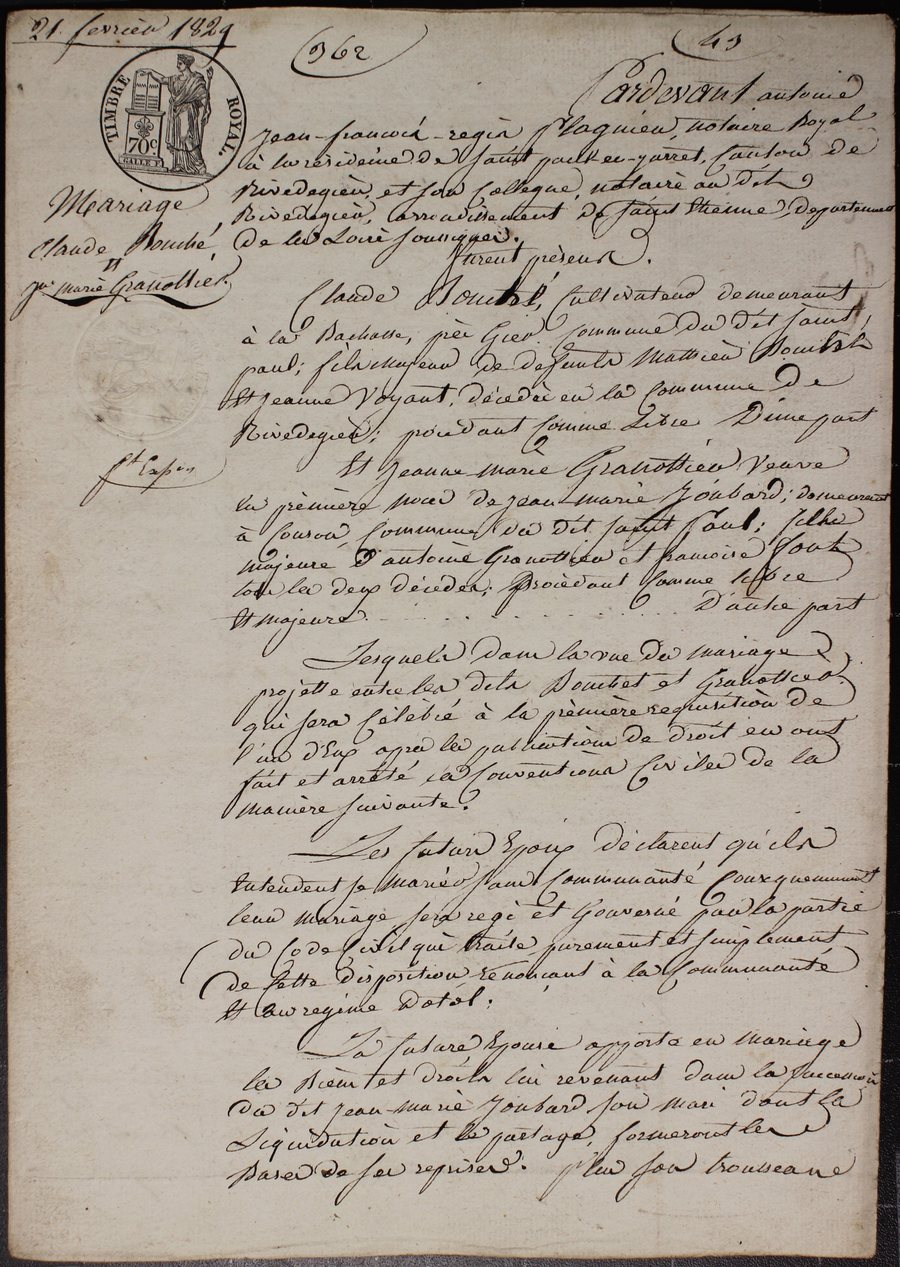 21. fevrier 1829
362
43
TIMBRE ROYAL.
70c.
Mariage
Claude Bouché
Et
Jne marie Granottier.
Pardevant antoine
Jean-françois-regis Plagnieu, notaire Royal
à la residence de saint paul-en-jarret, Canton de
Rivedegier, et son Collegue, notaire au dit
Rivedegier, arrondissement de saint Etienne departement
de la Loire soussignés.
furent présens.
Claude Bouchet, Cultivateur demeurant
à la Bachasse, près Gier Commune du dit saint
paul; fils majeur de defunts Mathieu Bouchet
Et Jeanne Voyant, décédés en la Commune de
Rivedegier; procédant Comme Libre D'une part
Et Jeanne marie Granottier Veuve
en première noce de Jean-marie Joubard; demeurant
à Commune du dit saint Paul; fille
majeure d'antoine Granottier et francoise font
tous les deux décédés; Procédant Comme libre
Et majeure D'autre part
Lesquels dans la vue du mariage
projetté entre les dits Bouchet et Granottier
qui sera Célébré à la première requisition de
l'un d'Eux après les publications de droit en ont
fait et arrêté les Conventions Civiles de la
manière suivante.
Les futurs Epoux déclarent qu'ils
Entendent se marier sans Communauté Consequemment
leur mariage sera regi et Gouverné par la partie
du Code Civil qui traite purement et simplement
de Cette disposition, renoncant à la Communauté
Et au regime Dotal.
La future Epouse apporte en mariage
les Biens et droits lui revenant dans la succession
du dit Jean-marie Joubard son mari dont la
Liquidation et le partage, formeront les
Bases de ses reprises. plus son trousseau